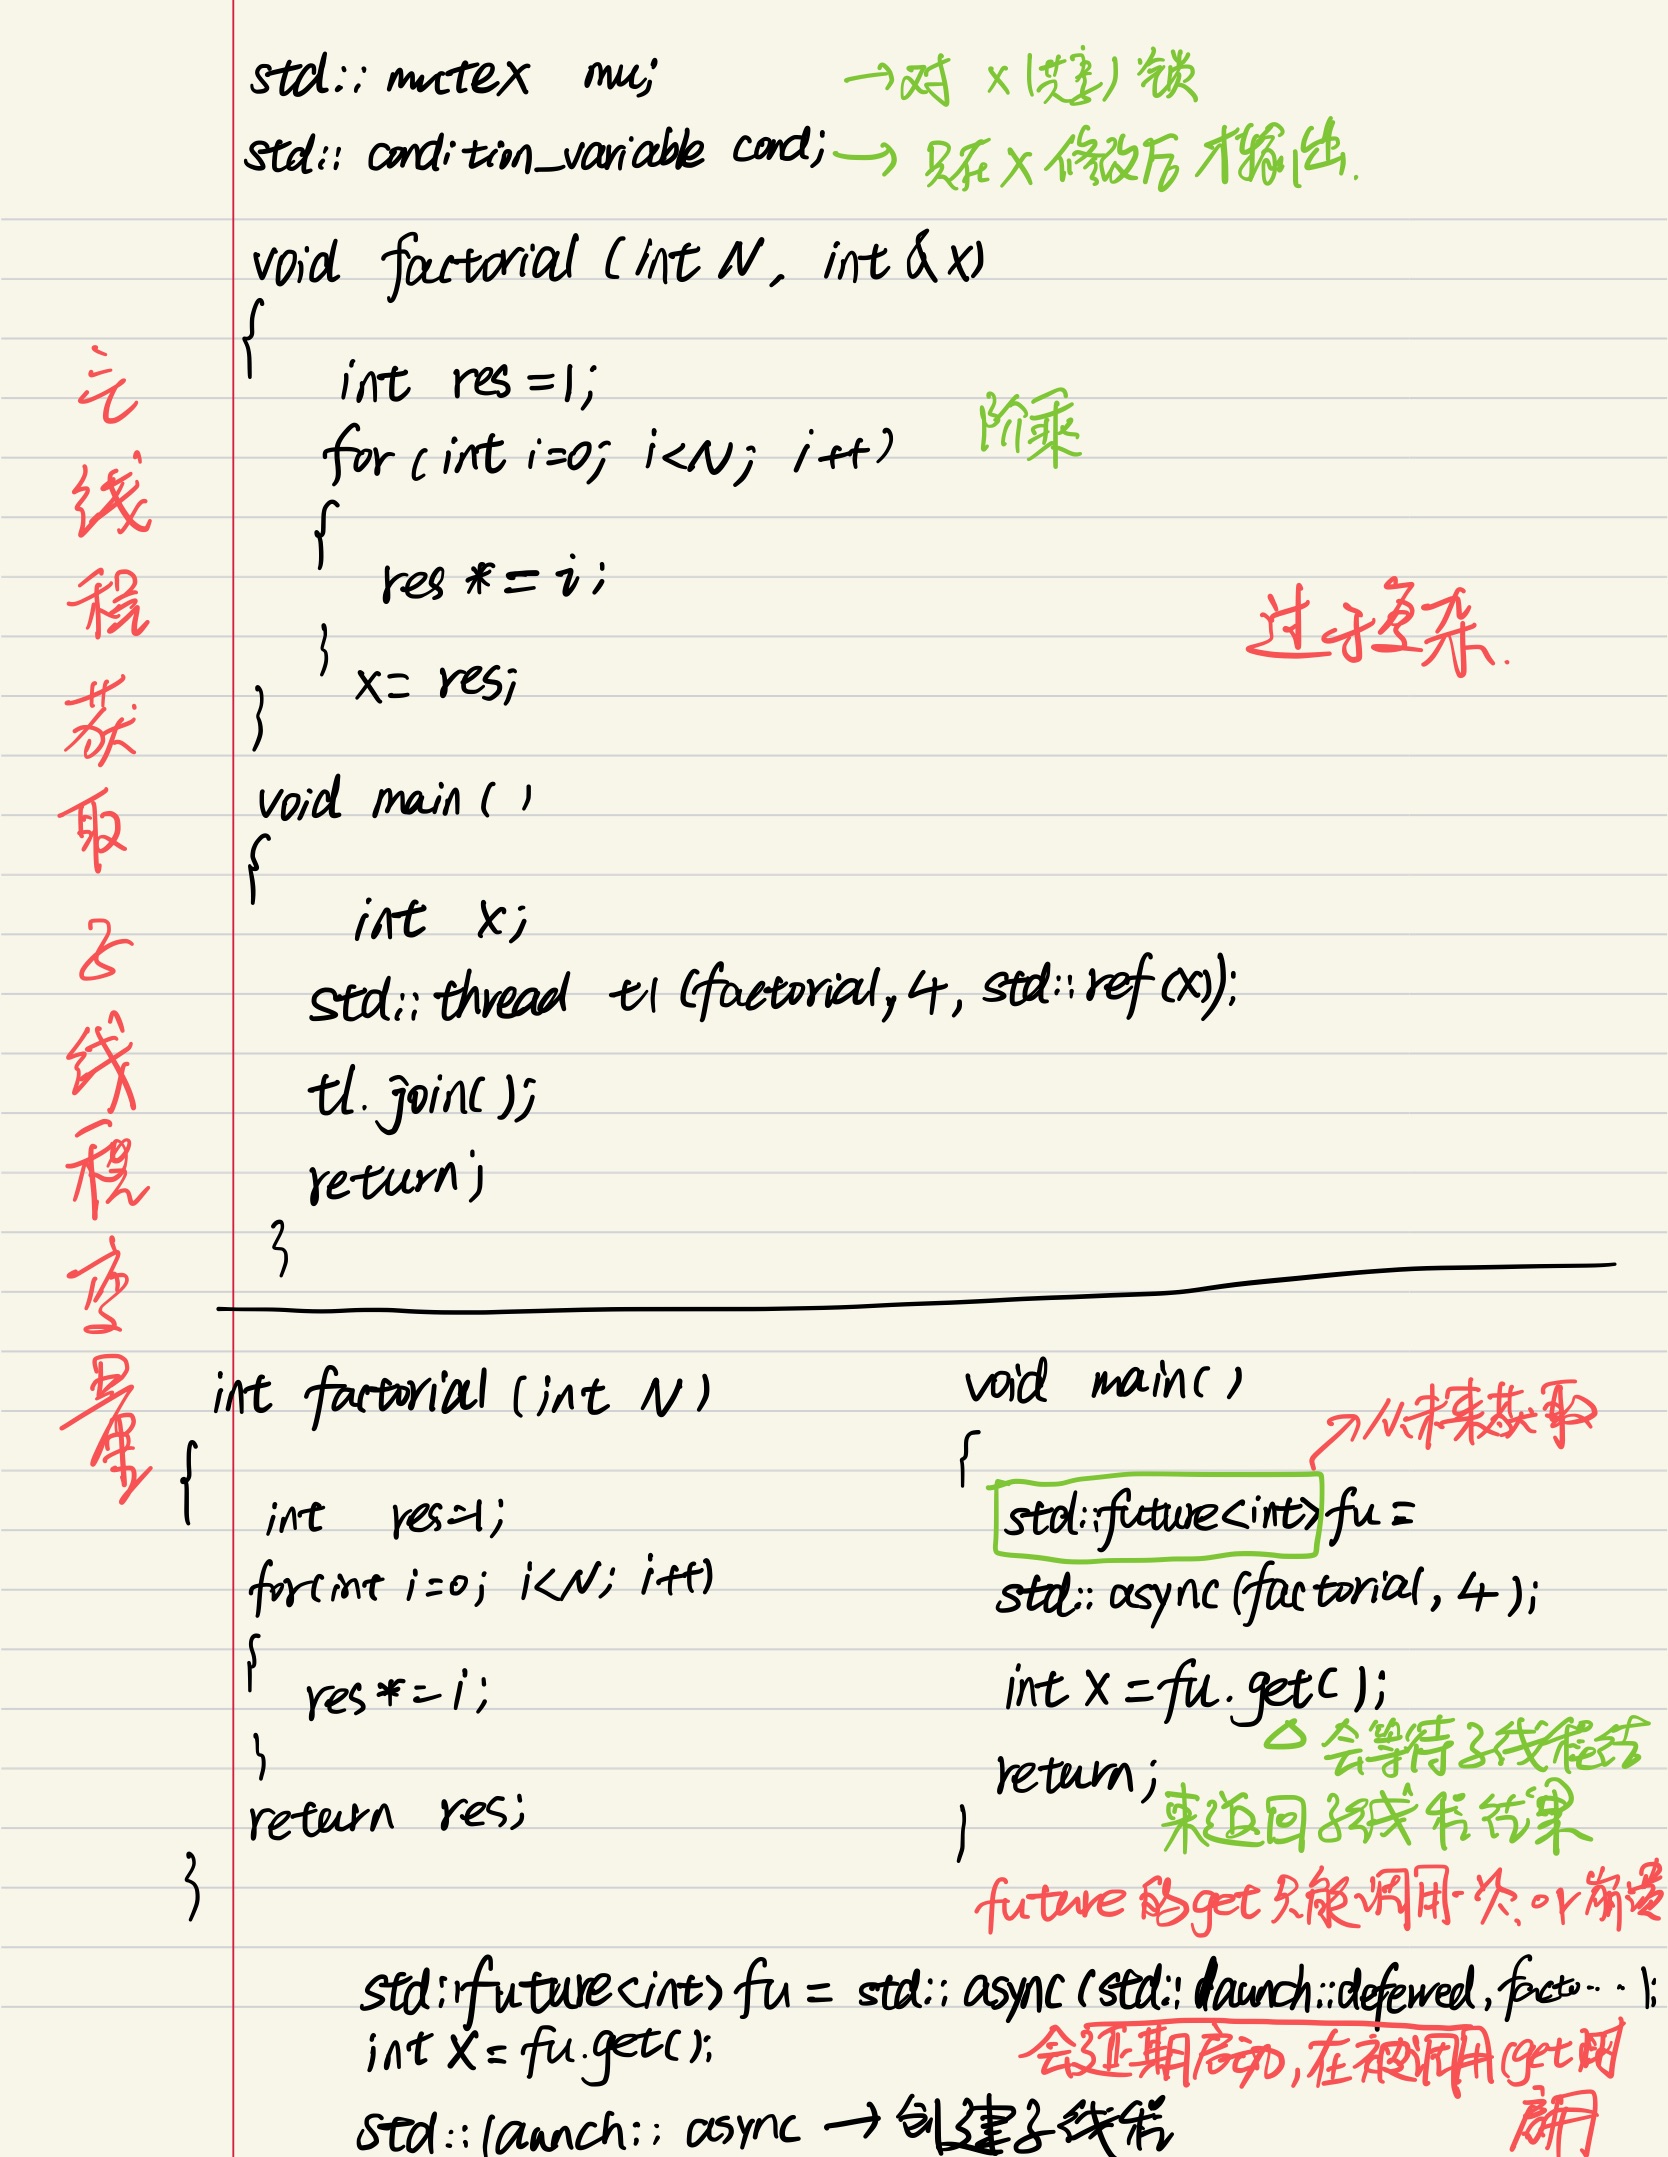 std::mutex mu; →对 x(共享)锁
std::condition_variable cond; → 只在 x 修改后才输出.
void factorial (int N, int &x)
{
int res=1;
for (int i=0; i<N; i++) 阶乘
{
res *= i;
}
x= res;
}
过于复杂.
void main()
{
int x;
std::thread t1 (factorial, 4, std::ref(x));
t1.join();
return;
}
主线程获取子线程变量
int factorial (int N)
{
int res=1;
for(int i=0; i<N; i++)
{
res *= i;
}
return res;
}
void main()
{
std::future<int> fu = →从未来获取
std::async(factorial, 4);
int x = fu.get();
△会等待子线程结
return;
来返回子线程结果
}
future的get只能调用一次.or崩溃
std::future<int> fu = std::async(std::launch::deferred, facto...);
int x = fu.get();
会延期启动,在被调用(get时
启用
std::launch::async → 创建子线程